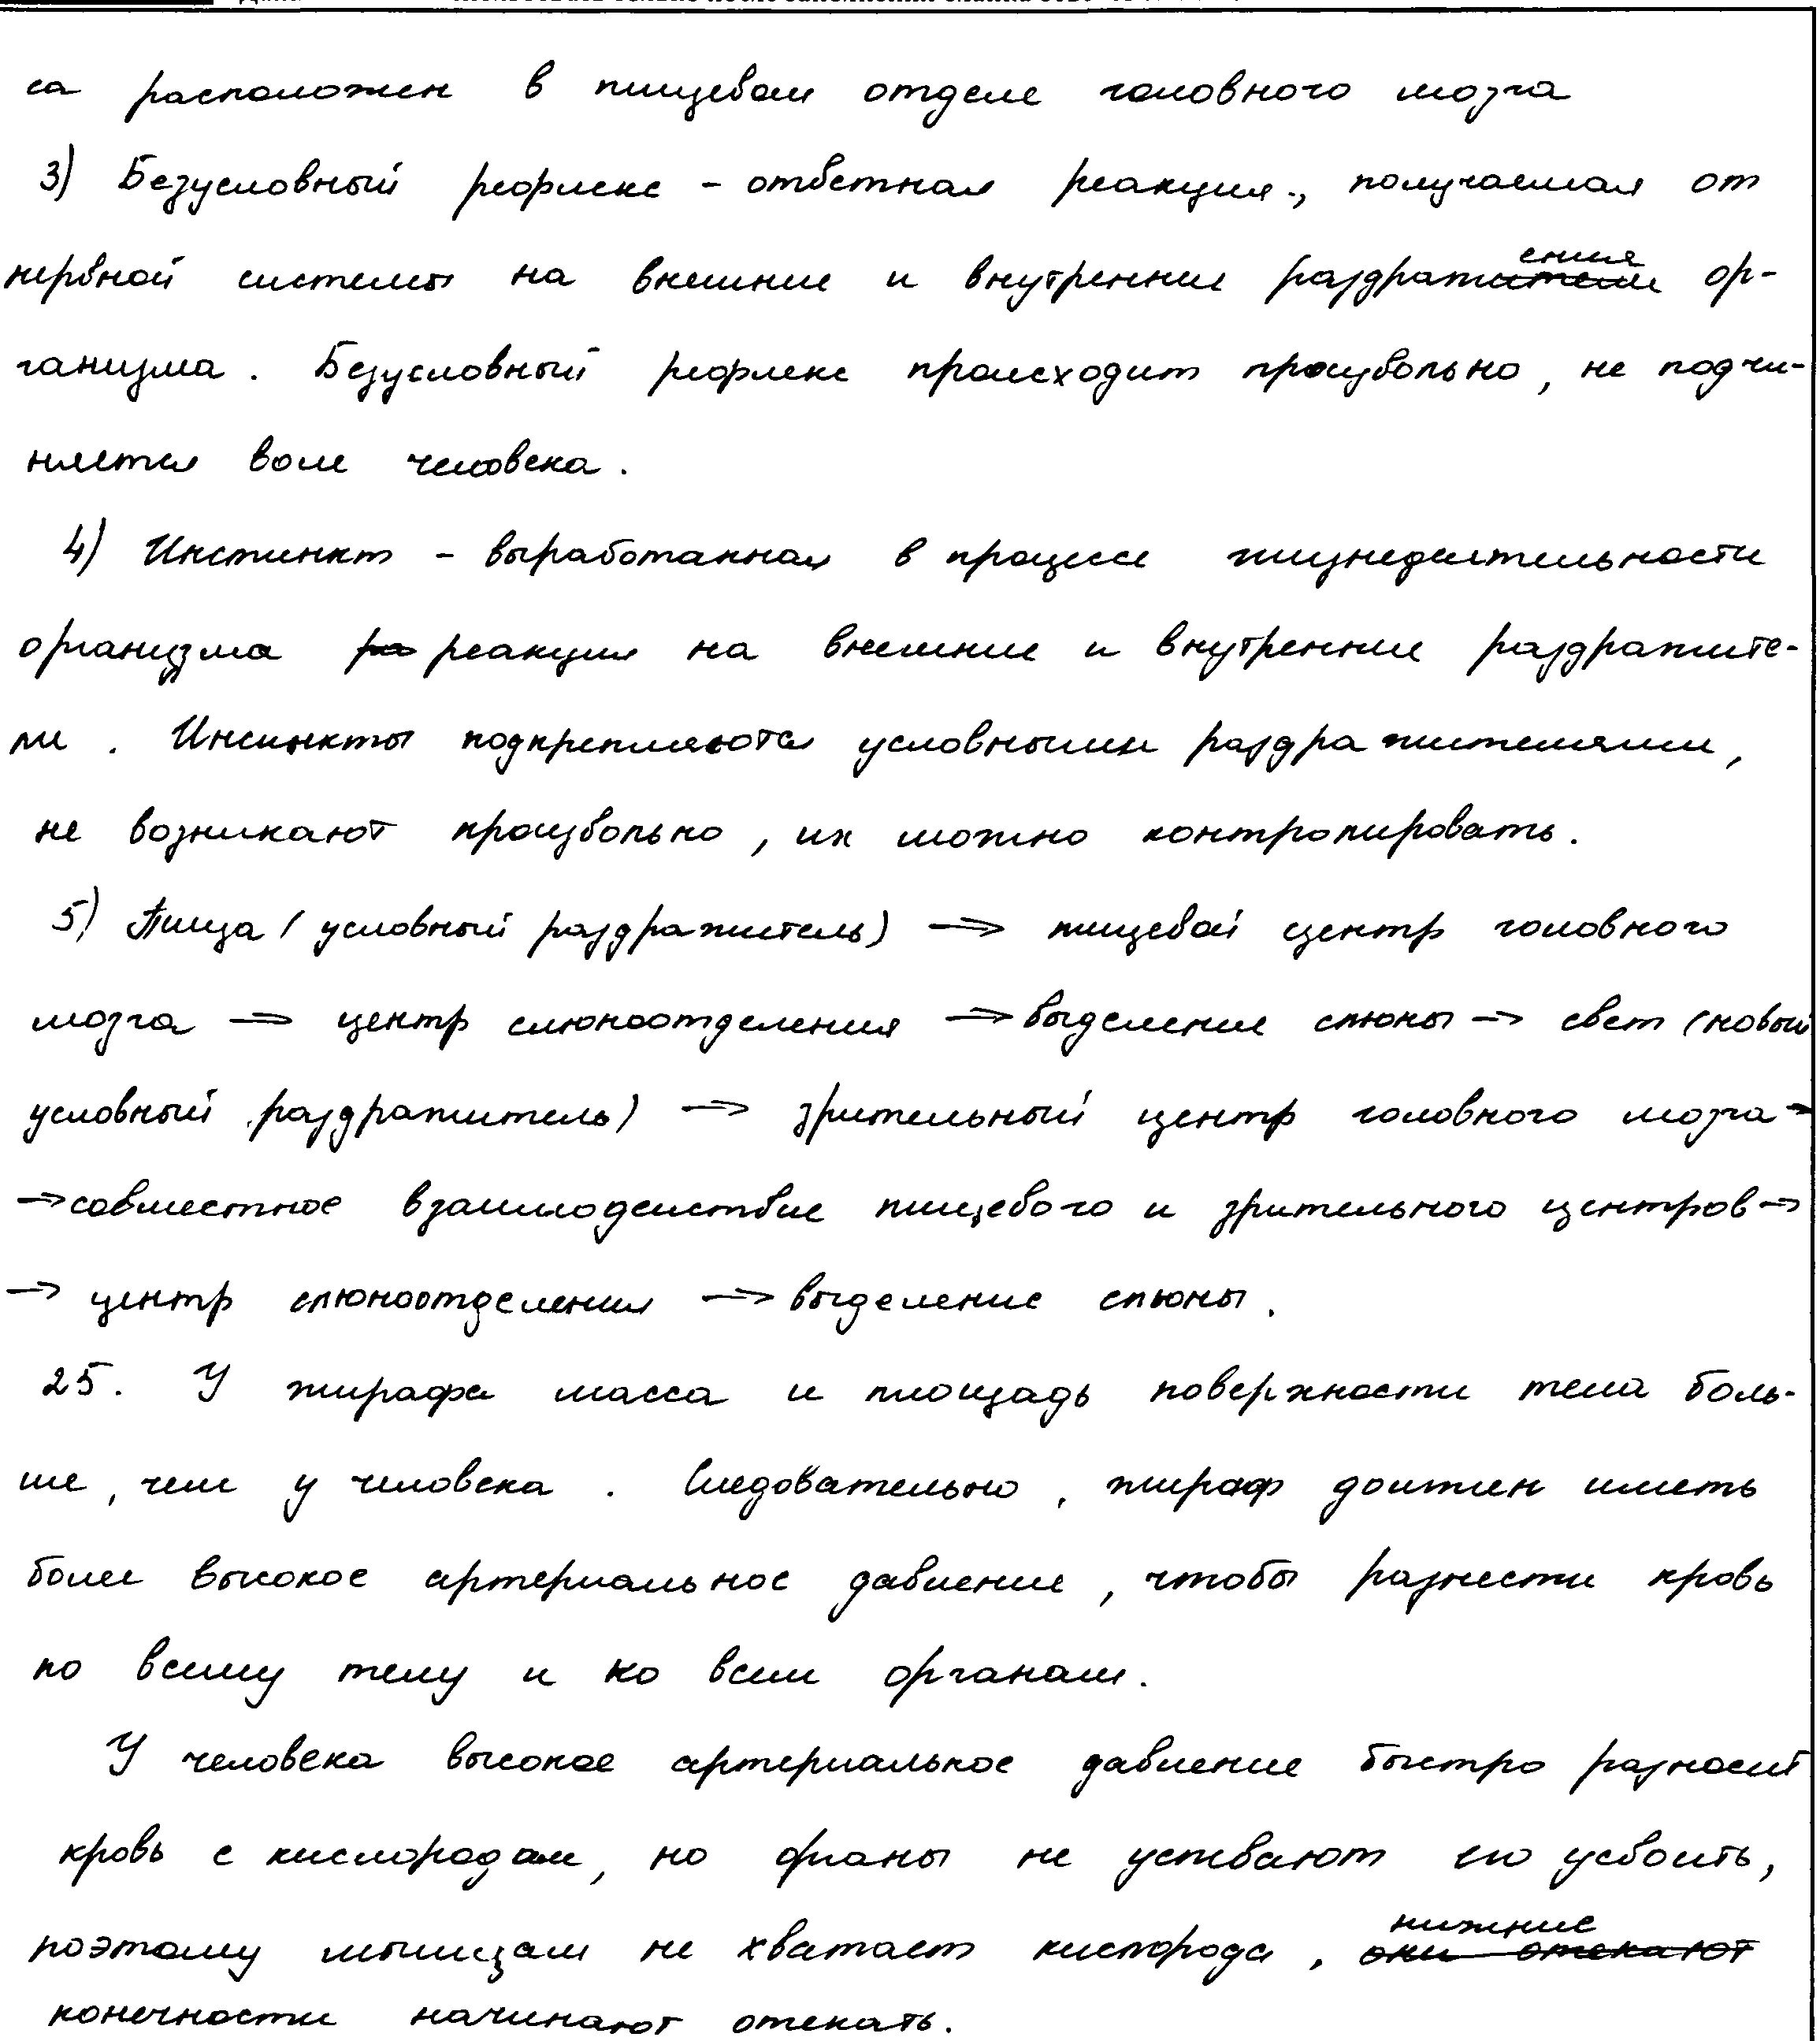 са расположен в пищевом отделе головного мозга
3) Безусловный рефлекс - ответная реакция, получаемая от
нервной системы на внешние и внутренние раздражения ор-
ганизма. Безусловный рефлекс происходит произвольно, не подчи-
няется воле человека.
4) Инстинкт - выработанная в процессе жизнедеятельности
организма реакция на внешние и внутренние раздражите-
ли. Инсинкты подкрепляются условными раздражителями,
не возникают произвольно, их можно контролировать.
5) Пища (условный раздражитель) → пищевой центр головного
мозга → центр слюноотделения → выделение слюны → свет (новый
условный раздражитель) → зрительный центр головного мозга →
→ совместное взаимодействие пищевого и зрительного центров →
→ центр слюноотделения → выделение слюны.
25. У жирафа масса и площадь поверхности тела боль-
ше, чем у человека. Следовательно, жираф должен иметь
более высокое артериальное давление, чтобы разнести кровь
по всему телу и ко всем органам.
У человека высокое артериальное давление быстро разносит
кровь с кислородом, но органы не успевают его усвоить,
поэтому мышцам не хватает кислорода, нижние
конечности начинают отекать.